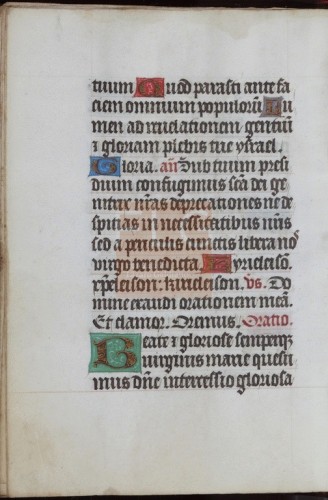 tuum Quod parasti ante fa
ciem omnium populorū Lu
men ad reuelationem gentiū
⁊ gloriam plebis tue ysrael.
Gloria. añ Sub tuum presi
dium confugimus scā dei ge
nitrix nr̄as deprecationes ne de
spicias in necessitatibus nr̄is
sed a periculis cunctis libera nos
virgo benedicta. Kyrieleiso.
xp̄eleison. kyrieleison. vs. Do
mine exaudi orationem meā.
Et clamor. Oremus. Oratio.
Beate ⁊ gloriose semperqꝫ
virginis marie quesu
mus dn̄e intercessio gloriosa